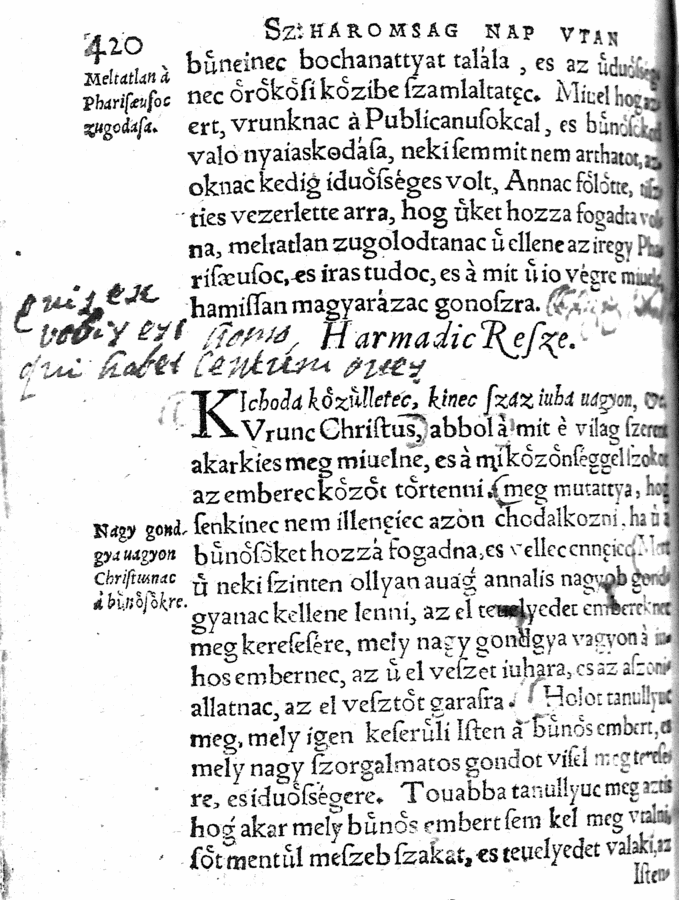 420
SZ: HAROMSAG NAP VTAN
Meltatlan à
Pharisæusoc
zugodasa.
bűneinec bochanattyat talála, es az űduőſſége
nec ŏrŏkŏſi kŏzibe ſzamlaltatęc. Miuel hog az
ert, vrunknac à Publicanuſokcal, es bűnŏſŏkcel
valo nyaiaskodáſa, neki ſemmit nem arthatot, az
oknac kedig iduŏſséges volt, Annac fŏlŏtte, tiſz
ties vezerlette arra, hog űket hozza fogadta vol
na, meltatlan zugolodtanac ű ellene az iregy Pha
riſæuſoc, es iras tudoc, es à mit ű io végre miuele,
hamiſſan magyarázac gonoſzra.
quis ex
vobis est homo,
qui habet centum oues
Harmadic Reſze.
KIchoda kŏzűlletec, kinec ſzaz iuha uagyon, &c.
Vrunc Chriſtus, abbol à mit è vilag ſzerent
akarkies meg miuelne, es à mi kŏzŏnſéggel ſzokot
az emberec kŏzŏt tŏrtenni, meg mutattya, hog
ſenkinec nem illenęiec azon chodalkozni, ha ű a
bűnŏſŏket hozzá fogadna, es vellec ennęiec
Nagy gond-
gya uagyon
Chriſtusnac
à bűnŏſŏkre.
ű neki ſzinten ollyan auaǵ annalis nagyob gond
gyanac kellene lenni, az el teuelyedet embereknec
meg kereſeſére, mely nagy gondgya vagyon à iu-
hos embernec, az ű el veſzet iuhara, es az aſzoni
allatnac, az el veſztŏt garaſra. Holot tanullyuc
meg, mely igen keſerűli Iſten à bűnŏs embert, es
mely nagy ſzorgalmatos gondot viſel meg tereſe
re, es iduŏſségere. Touabba tanullyuc meg aztis
hoǵ akar mely bűnŏs embert ſem kel meg vtalni,
ſŏt mentűl meſzeb ſzakat, es teuelyedet valaki, az
Iſten